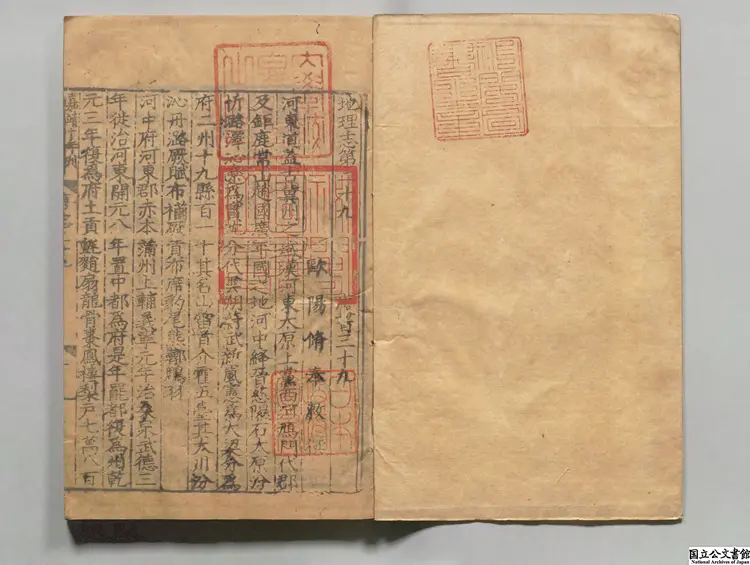 地理志第二十九
三十九
歐陽脩奉敕
河東道蓋古冀州之域漢河東太原上黨西河鴈門代郡
及鉅鹿常山趙國廣平國之地河中絳晉慈隰石太原汾
忻潞澤沁為實沈分代雲朔蔚武新嵐憲為大梁分為
府二州十九縣百一十其名山雷首介霍五臺其大川汾
沁丹潞厥賦布厥貢布席豹尾熊鞹鵰羽
河中府河東郡赤本蒲州上輔義寧元年治桑泉武德三
年徙治河東開元八年置中都為府是年罷都復為州乾
元三年復為府土貢氈扇龍骨棗鳳棲梨戶七萬八百
国立公文書館
National Archives of Japan